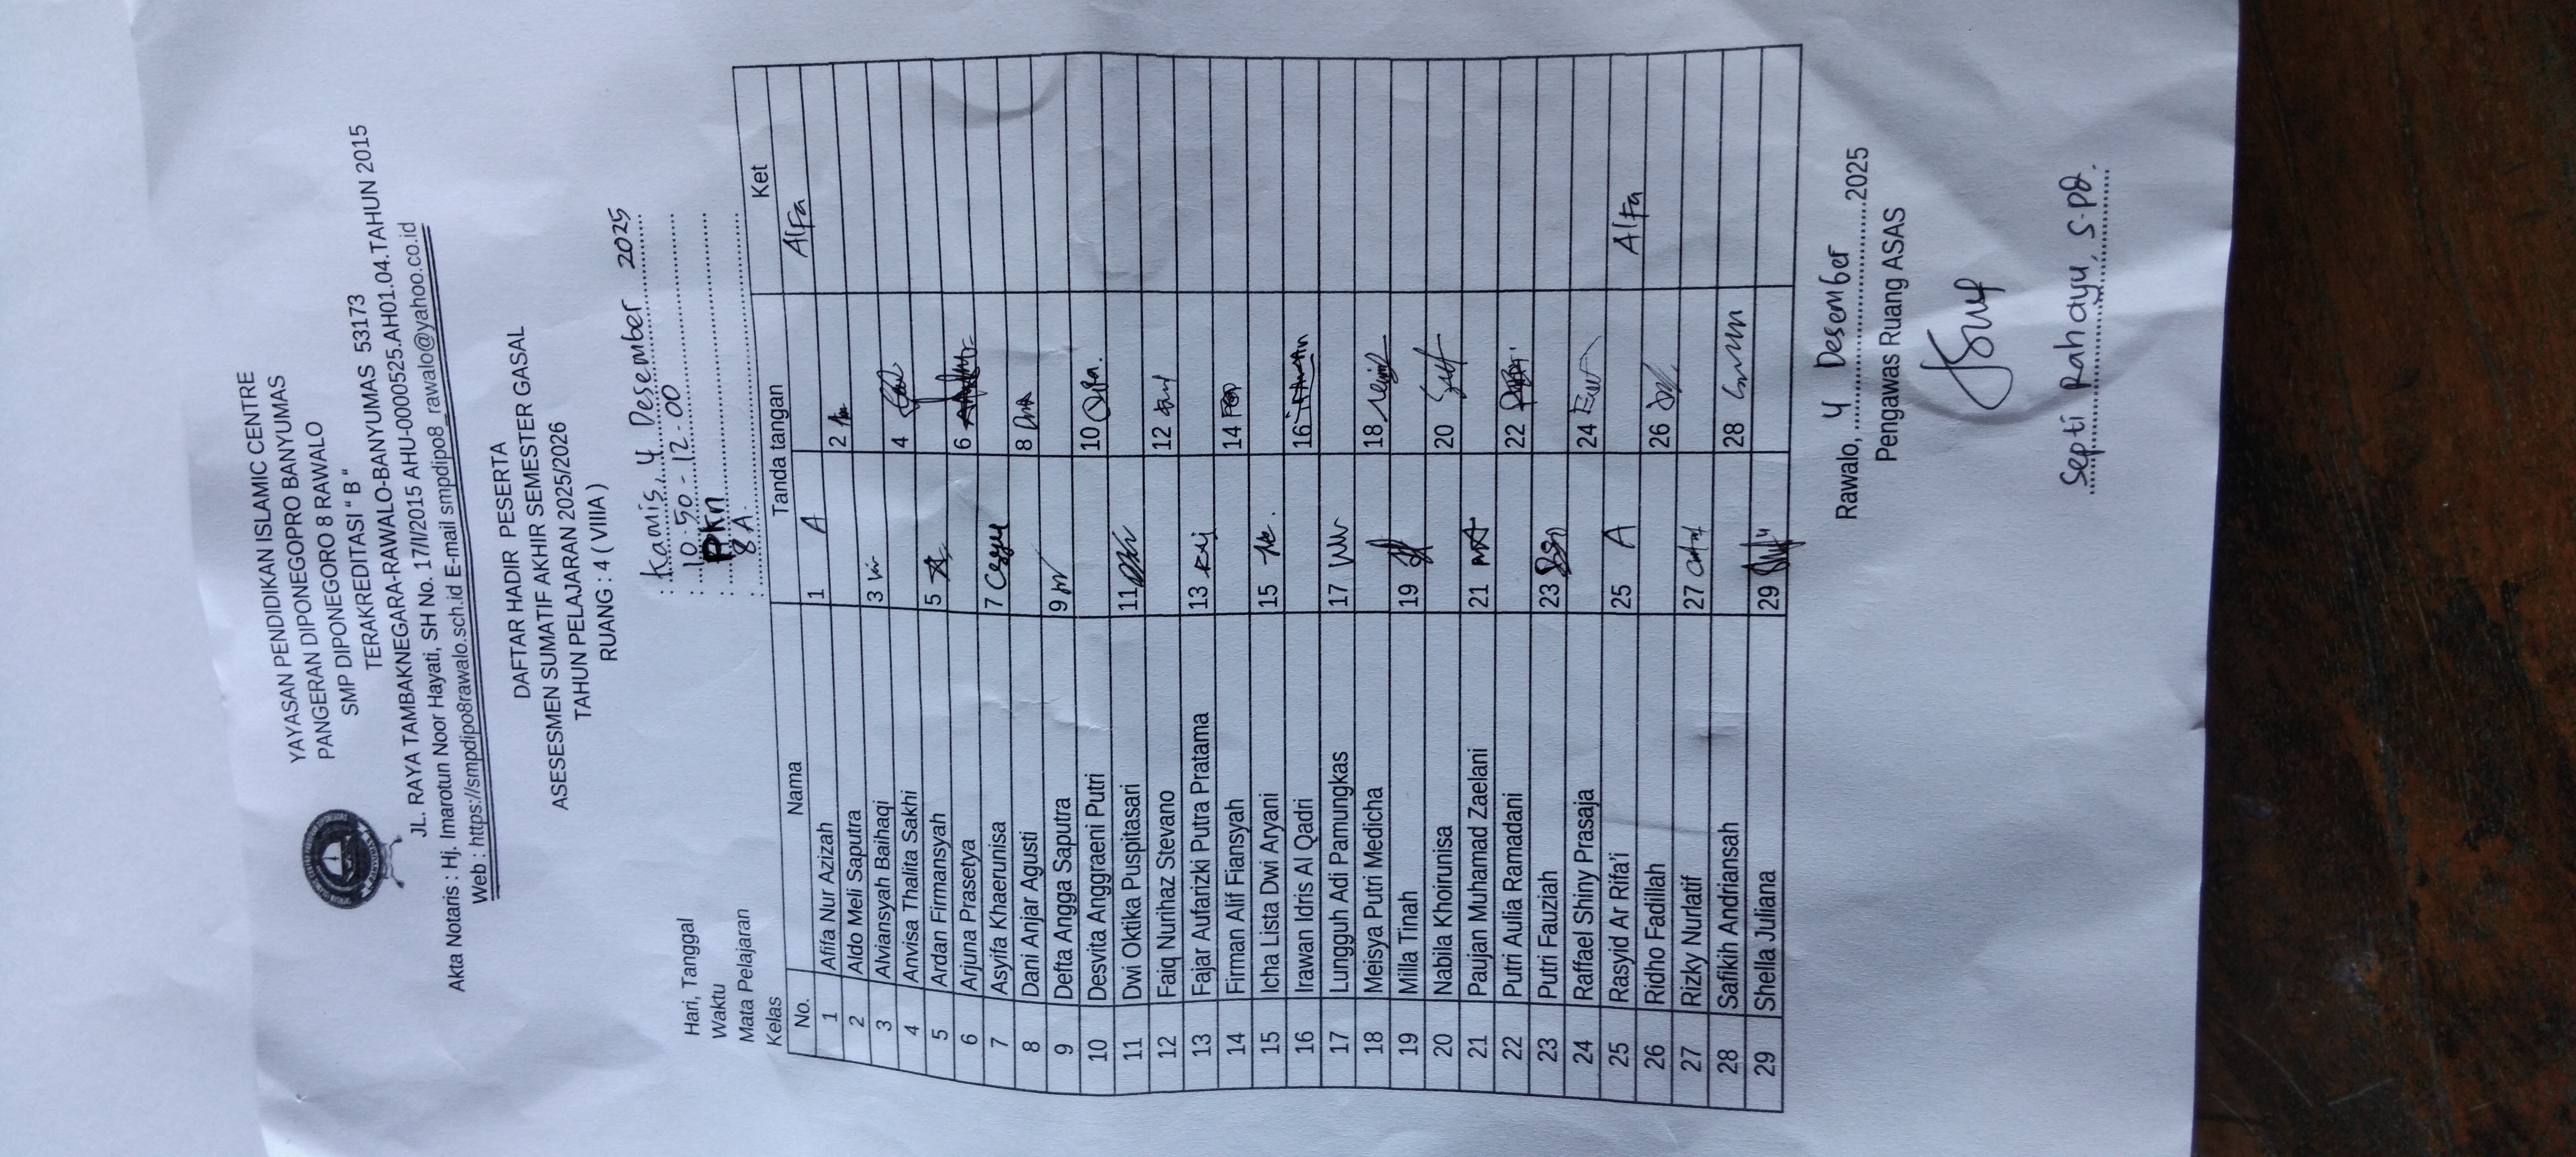 YAYASAN PENDIDIKAN ISLAMIC CENTRE
PANGERAN DIPONEGOPRO BANYUMAS
SMP DIPONEGORO 8 RAWALO
TERAKREDITASI " B "
JL. RAYA TAMBAKNEGARA-RAWALO-BANYUMAS 53173
Akta Notaris : Hj. Imarotun Noor Hayati, SH No. 17/II/2015 AHU-0000525.AH01.04.TAHUN 2015
Web : https://smpdipo8rawalo.sch.id E-mail smpdipo8_rawalo@yahoo.co.id
DAFTAR HADIR PESERTA
ASESESMEN SUMATIF AKHIR SEMESTER GASAL
TAHUN PELAJARAN 2025/2026
RUANG : 4 ( VIIIA )
Hari, Tanggal : Kamis, 4 Desember 2025
Waktu : 10.50 - 12.00
Mata Pelajaran : PKn
Kelas : 8A
No. Nama Tanda tangan Ket
1 Afifa Nur Azizah 1 A Alfa
2 Aldo Meli Saputra 2
3 Alviansyah Baihaqi 3
4 Anvisa Thalita Sakhi 4
5 Ardan Firmansyah 5
6 Arjuna Prasetya 6
7 Asyifa Khaerunisa 7
8 Dani Anjar Agusti 8
9 Defta Angga Saputra 9
10 Desvita Anggraeni Putri 10
11 Dwi Oktika Puspitasari 11
12 Faiq Nurihaz Stevano 12
13 Fajar Aufarizki Putra Pratama 13
14 Firman Alif Fiansyah 14
15 Icha Lista Dwi Aryani 15
16 Irawan Idris Al Qadri 16
17 Lungguh Adi Pamungkas 17
18 Meisya Putri Medicha 18
19 Milla Tinah 19
20 Nabila Khoirunisa 20
21 Paujan Muhamad Zaelani 21
22 Putri Aulia Ramadani 22
23 Putri Fauziah 23
24 Raffael Shiny Prasaja 24
25 Rasyid Ar Rifa'i 25 A Alfa
26 Ridho Fadillah 26
27 Rizky Nurlatif 27
28 Safikih Andriansah 28
29 Shella Juliana 29
Rawalo, 4 Desember 2025
Pengawas Ruang ASAS
Septi Rahayu, S.Pd.